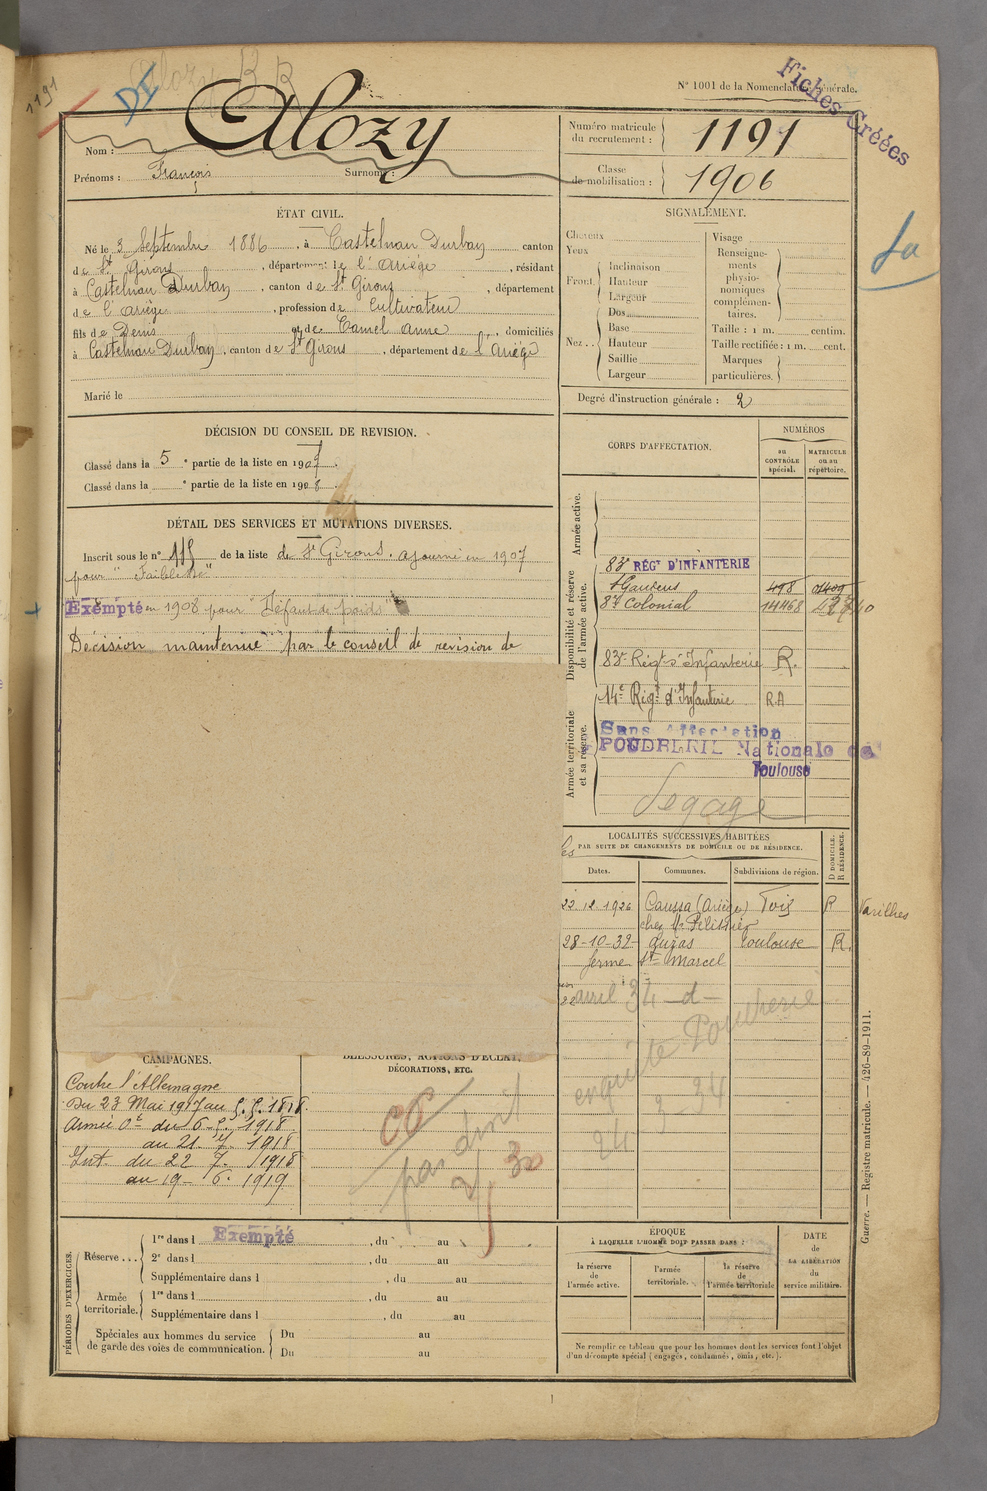 1191
DI
Alozy
N° 1001 de la Nomenclature générale.
Fiches Créées
Nom : Alozy
Prénoms : François Surnoms :
Numéro matricule du recrutement : 1191
Classe de mobilisation : 1906
ÉTAT CIVIL.
Né le 3 Septembre 1886, à Castelnau Durban canton
de St Girons, département de l'Ariège, résidant
à Castelnau Durban, canton de St Girons, département
de l'Ariège, profession de Cultivateur
fils de Denis et de Camel Anne, domiciliés
à Castelnau Durban, canton de St Girons, département de l'Ariège
Marié le
SIGNALEMENT.
Cheveux
Yeux
Front
Inclinaison
Hauteur
Largeur
Nez
Dos
Base
Hauteur
Saillie
Largeur
Visage
Renseignements physionomiques complémentaires.
Taille : 1 m. centim.
Taille rectifiée : 1 m. cent.
Marques particulières.
Degré d'instruction générale : 2
DÉCISION DU CONSEIL DE REVISION.
Classé dans la 5e partie de la liste en 1907
Classé dans la e partie de la liste en 1908
DÉTAIL DES SERVICES ET MUTATIONS DIVERSES.
Inscrit sous le n° 115 de la liste de St Girons. ajourné en 1907
pour "Faiblesse"
Exempté en 1908 pour "Défaut de poids"
Décision maintenue par le conseil de revision de
CORPS D'AFFECTATION.
NUMÉROS
au CONTRÔLE spécial.
MATRICULE ou au répertoire.
Armée active.
Disponibilité et réserve de l'armée active.
83e RÉGt D'INFANTERIE
St Gaudens 498 01409
8e Colonial 14468
83e Régt d'Infanterie R.
Armée territoriale et sa réserve.
14e Régt d'Infanterie R.A
Sans Affectation
POUDRERIE Nationale de
Toulouse
Dégagé
LOCALITÉS SUCCESSIVES HABITÉES
PAR SUITE DE CHANGEMENTS DE DOMICILE OU DE RÉSIDENCE.
Dates. Communes. Subdivisions de région. D DOMICILE. R RÉSIDENCE.
22.12.1926 Caussa (Ariège) Foix R Varilhes
chez Mr Pélissier
28-10-32 Auzas Toulouse R.
ferme St Marcel
22 avril 34 - d -
enquête Poudrerie
24 3 34
CAMPAGNES.
Contre l'Allemagne
Du 23 Mai 1917 au 5.5.1918.
Armée Oe du 6-5-1918
au 21. 7. 1918
Int. du 22 7. 1918
au 19- 6. 1919
BLESSURES, ACTIONS D'ÉCLAT,
DÉCORATIONS, ETC.
pas droit
PÉRIODES D'EXERCICES.
Réserve ... 1re dans l Exempté, du au
2e dans l, du au
Supplémentaire dans l, du au
Armée territoriale. 1re dans l, du au
Supplémentaire dans l, du au
Spéciales aux hommes du service de garde des voies de communication. Du au
Du au
ÉPOQUE
À LAQUELLE L'HOMME DOIT PASSER DANS :
la réserve de l'armée active.
l'armée territoriale.
la réserve de l'armée territoriale
DATE de LA LIBÉRATION du service militaire.
Ne remplir ce tableau que pour les hommes dont les services font l'objet
d'un décompte spécial (engagés, condamnés, omis, etc.).
Guerre. — Registre matricule. — 426-89-1911.